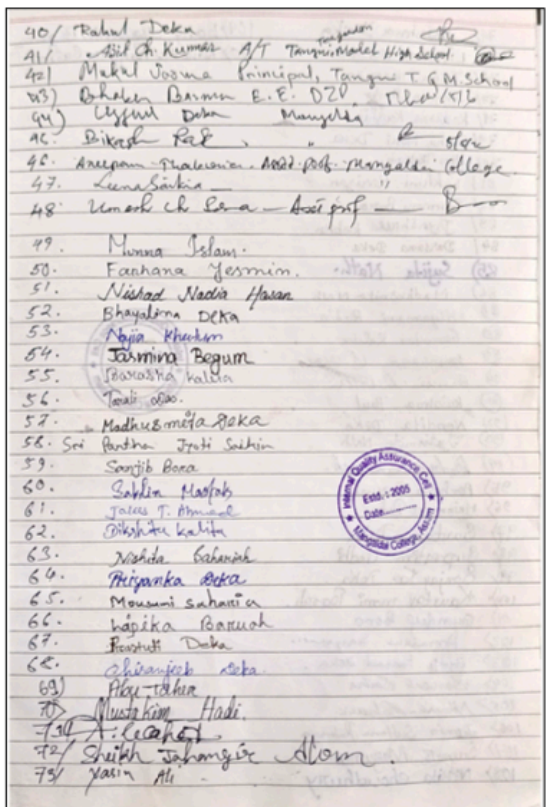 40/ Rahul Deka
41/ Ajit Ch. Kumar A/T Tangni Model High School
42/ Mukul Sarma Principal, Tangni T.G.M. School
43) Bhaben Barman E.E. DZP
44) Deka Mangaldai
45. Bikash
46. Anupam Asstt. Prof. Mangaldai College
47. Leena Saikia
48. Umesh Ch Bora - Asst prof
49. Munna Islam.
50. Farhana Yesmin.
51. Nishad Nadia Hasan
52. Bhayalina Deka
53. Najia Khatun
54. Jasmina Begum
55. Barasha Kalita
56.
57. Madhusmita Deka
58. Sri Partha Jyoti Saikia
59. Sanjib Bora
60. Sahlin
61. T. Ahmed
62. Dikshita Kalita
63. Nishita Saharia
64. Priyanka Deka
65. Mousumi Saharia
66. Lapika Baruah
67. Prastuti Deka
68. Chiranjeeb Deka.
69) Abu Taher
70) Mustakim Hadi.
71)
72/ Sheikh Jahangir Alom.
73/ Yasin Ali
Internal Quality Assurance Cell
Estd. : 2005
Date
Mangaldai College, Assam